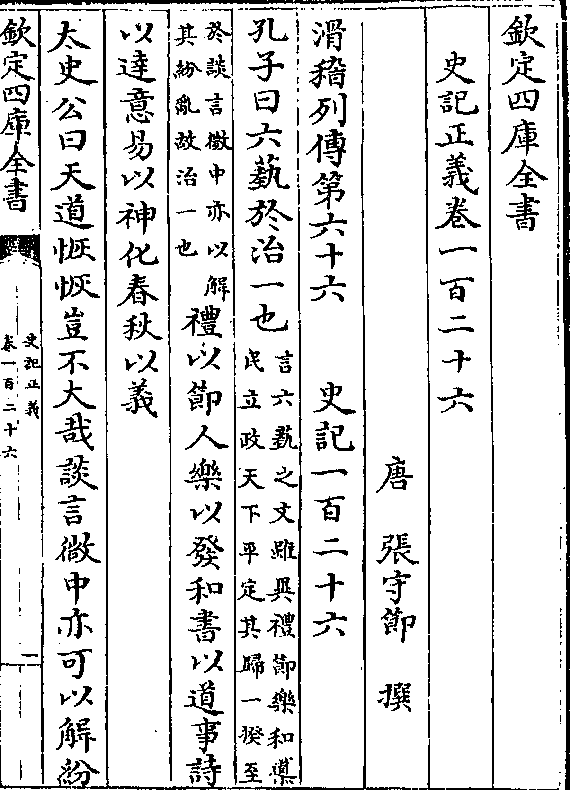 欽定四庫全書
史記正義卷一百二十六
唐 張守節 撰
滑稽列傳第六十六 史記一百二十六
孔子曰六藝於治一也言六藝之文雖異禮節樂和導
民立政天下平定其歸一揆至
於談言微中亦以解
其紛亂故治一也禮以節人樂以發和書以道事詩
以達意易以神化春秋以義
太史公曰天道恢恢豈不大哉談言微中亦可以解紛
欽定四庫全書
史記正義
卷一百二十六
一